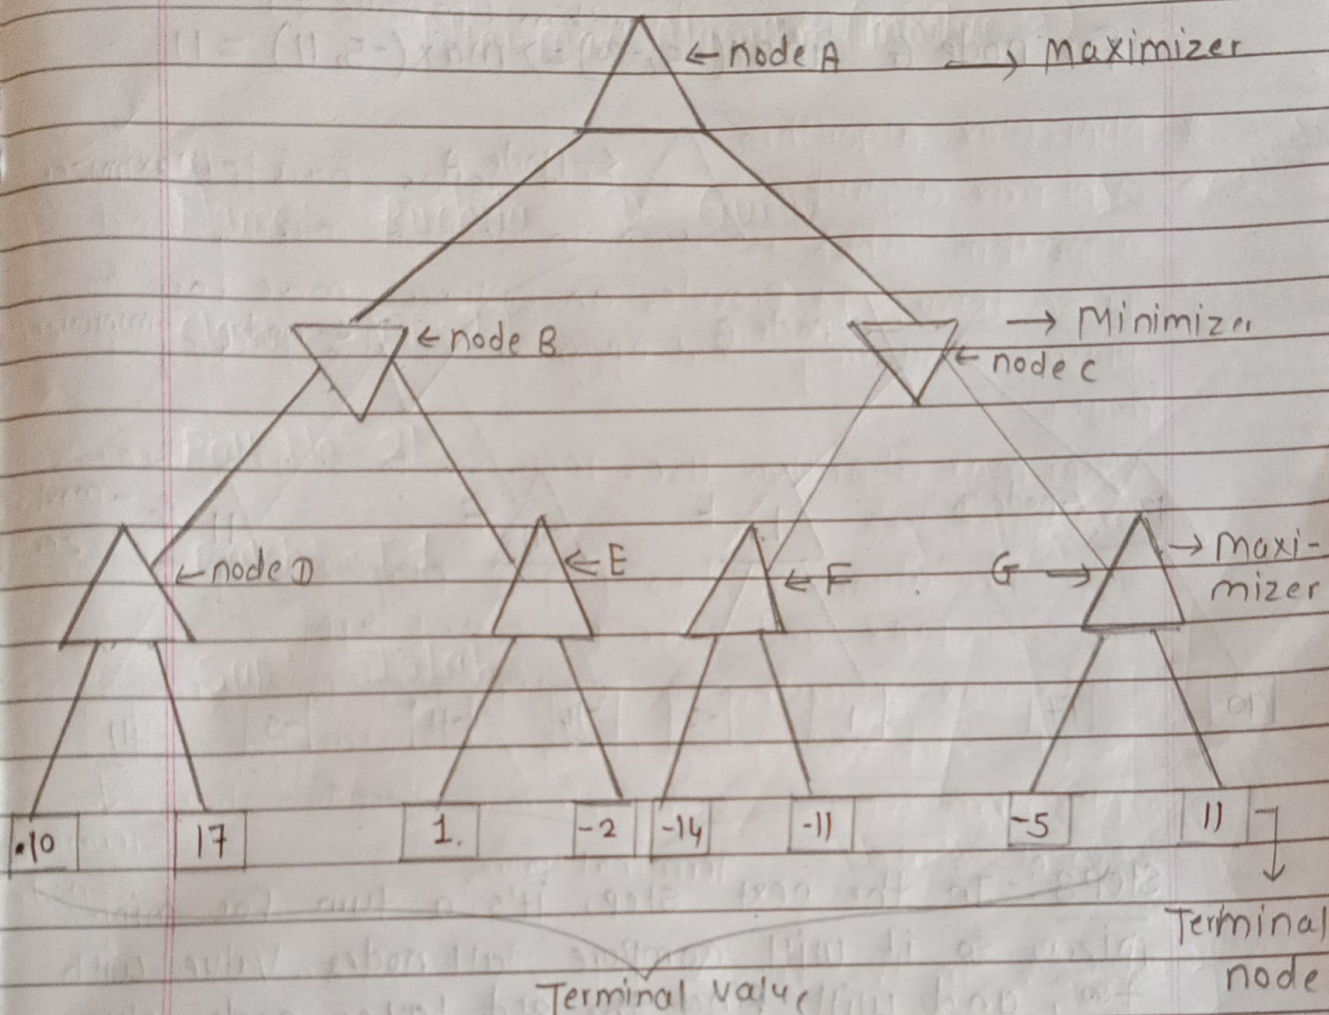 ←node A → Maximizer
←node B → Minimizer
←node C
←node D ←E ←F G→ →maxi-
mizer
10 17 1. -2 -14 -11 -5 11
Terminal
node
Terminal value